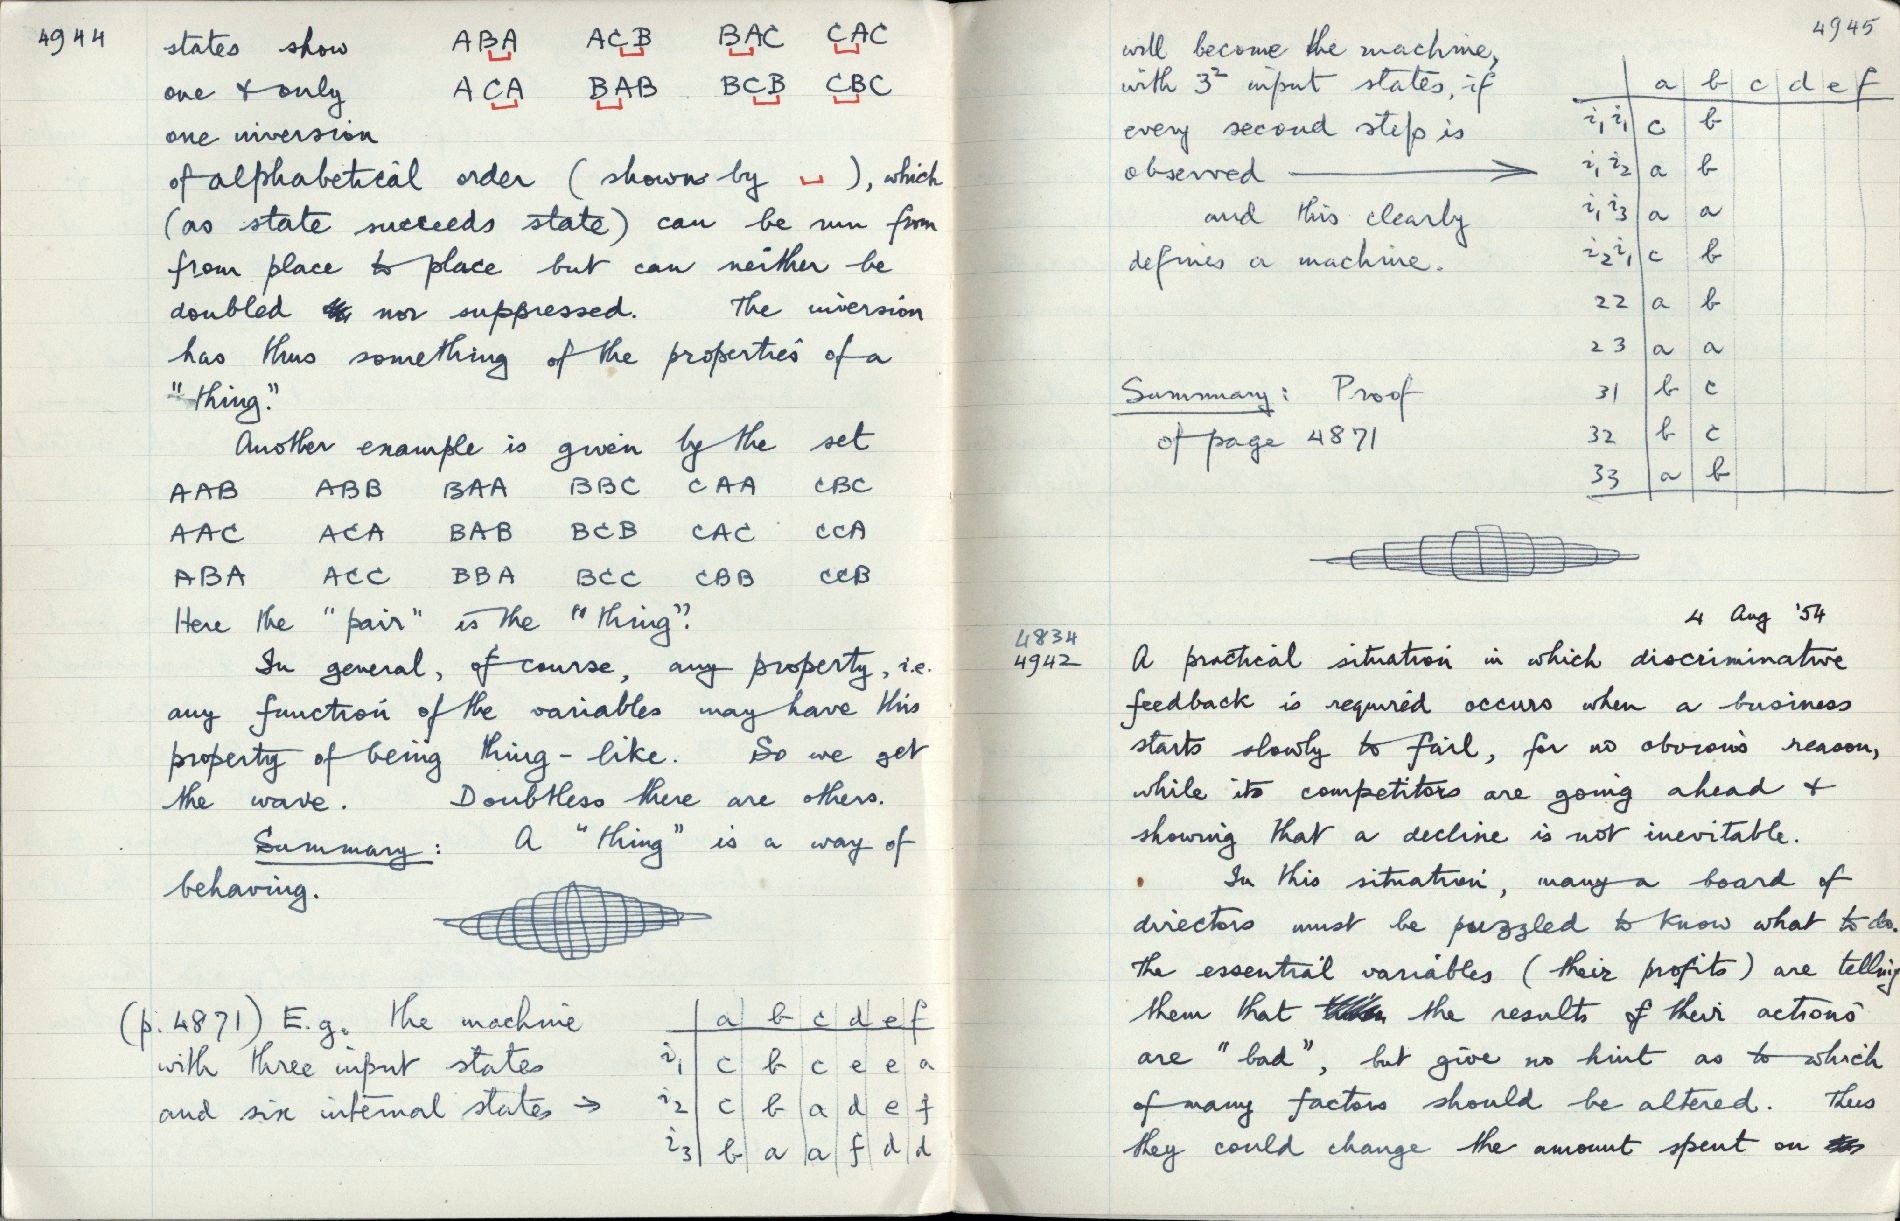 4944
states show ABA ACB BAC CAC
one & only ACA BAB BCB CBC
one inversion
of alphabetical order (shown by ⎵), which
(as state succeeds state) can be run from
from place to place but can neither be
doubled nor suppressed. The inversion
has thus something of the properties of a
"thing."
Another example is given by the set
AAB ABB BAA BBC CAA CBC
AAC ACA BAB BCB CAC CCA
ABA ACC BBA BCC CBB CCB
Here the "pair" is the "thing".
In general, of course, any property, i.e.
any function of the variables may have this
property of being thing-like. So we get
the wave. Doubtless there are others.
Summary: A "thing" is a way of
behaving.
(p.4871) E.g. the machine
with three input states
and six internal states →
a b c d e f
i1 c b c e e a
i2 c b a d e f
i3 b a a f d d
4945
will become the machine,
with 3² input states, if
every second step is
observed →
and this clearly
defines a machine.
a b c d e f
i1 i1 c b
i1 i2 a b
i1 i3 a a
i2 i1 c b
22 a b
23 a a
31 b c
32 b c
33 a b
Summary: Proof
of page 4871
4 Aug '54
4834
4942
A practical situation in which discriminative
feedback is required occurs when a business
starts slowly to fail, for no obvious reason,
while its competitors are going ahead &
showing that a decline is not inevitable.
In this situation, many a board of
directors must be puzzled to know what to do.
The essential variables (their profits) are telling
them that the results of their actions
are "bad", but give no hint as to which
of many factors should be altered. Thus
they could change the amount spent on